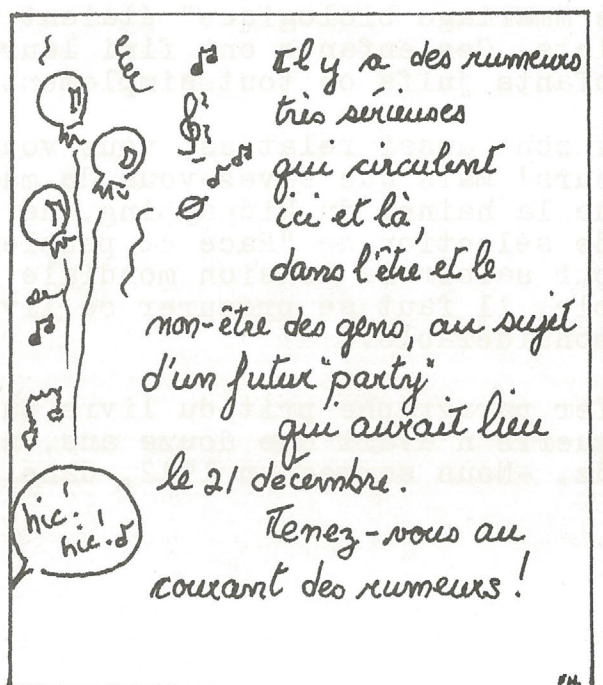 Il y a des rumeurs
très serieuses
qui circulent
ici et là,
dans l'être et le
non-être des gens, au sujet
d'un futur "party"
qui aurait lieu
le 21 décembre.
Tenez-vous au
courant des rumeurs !
hic!
hic!